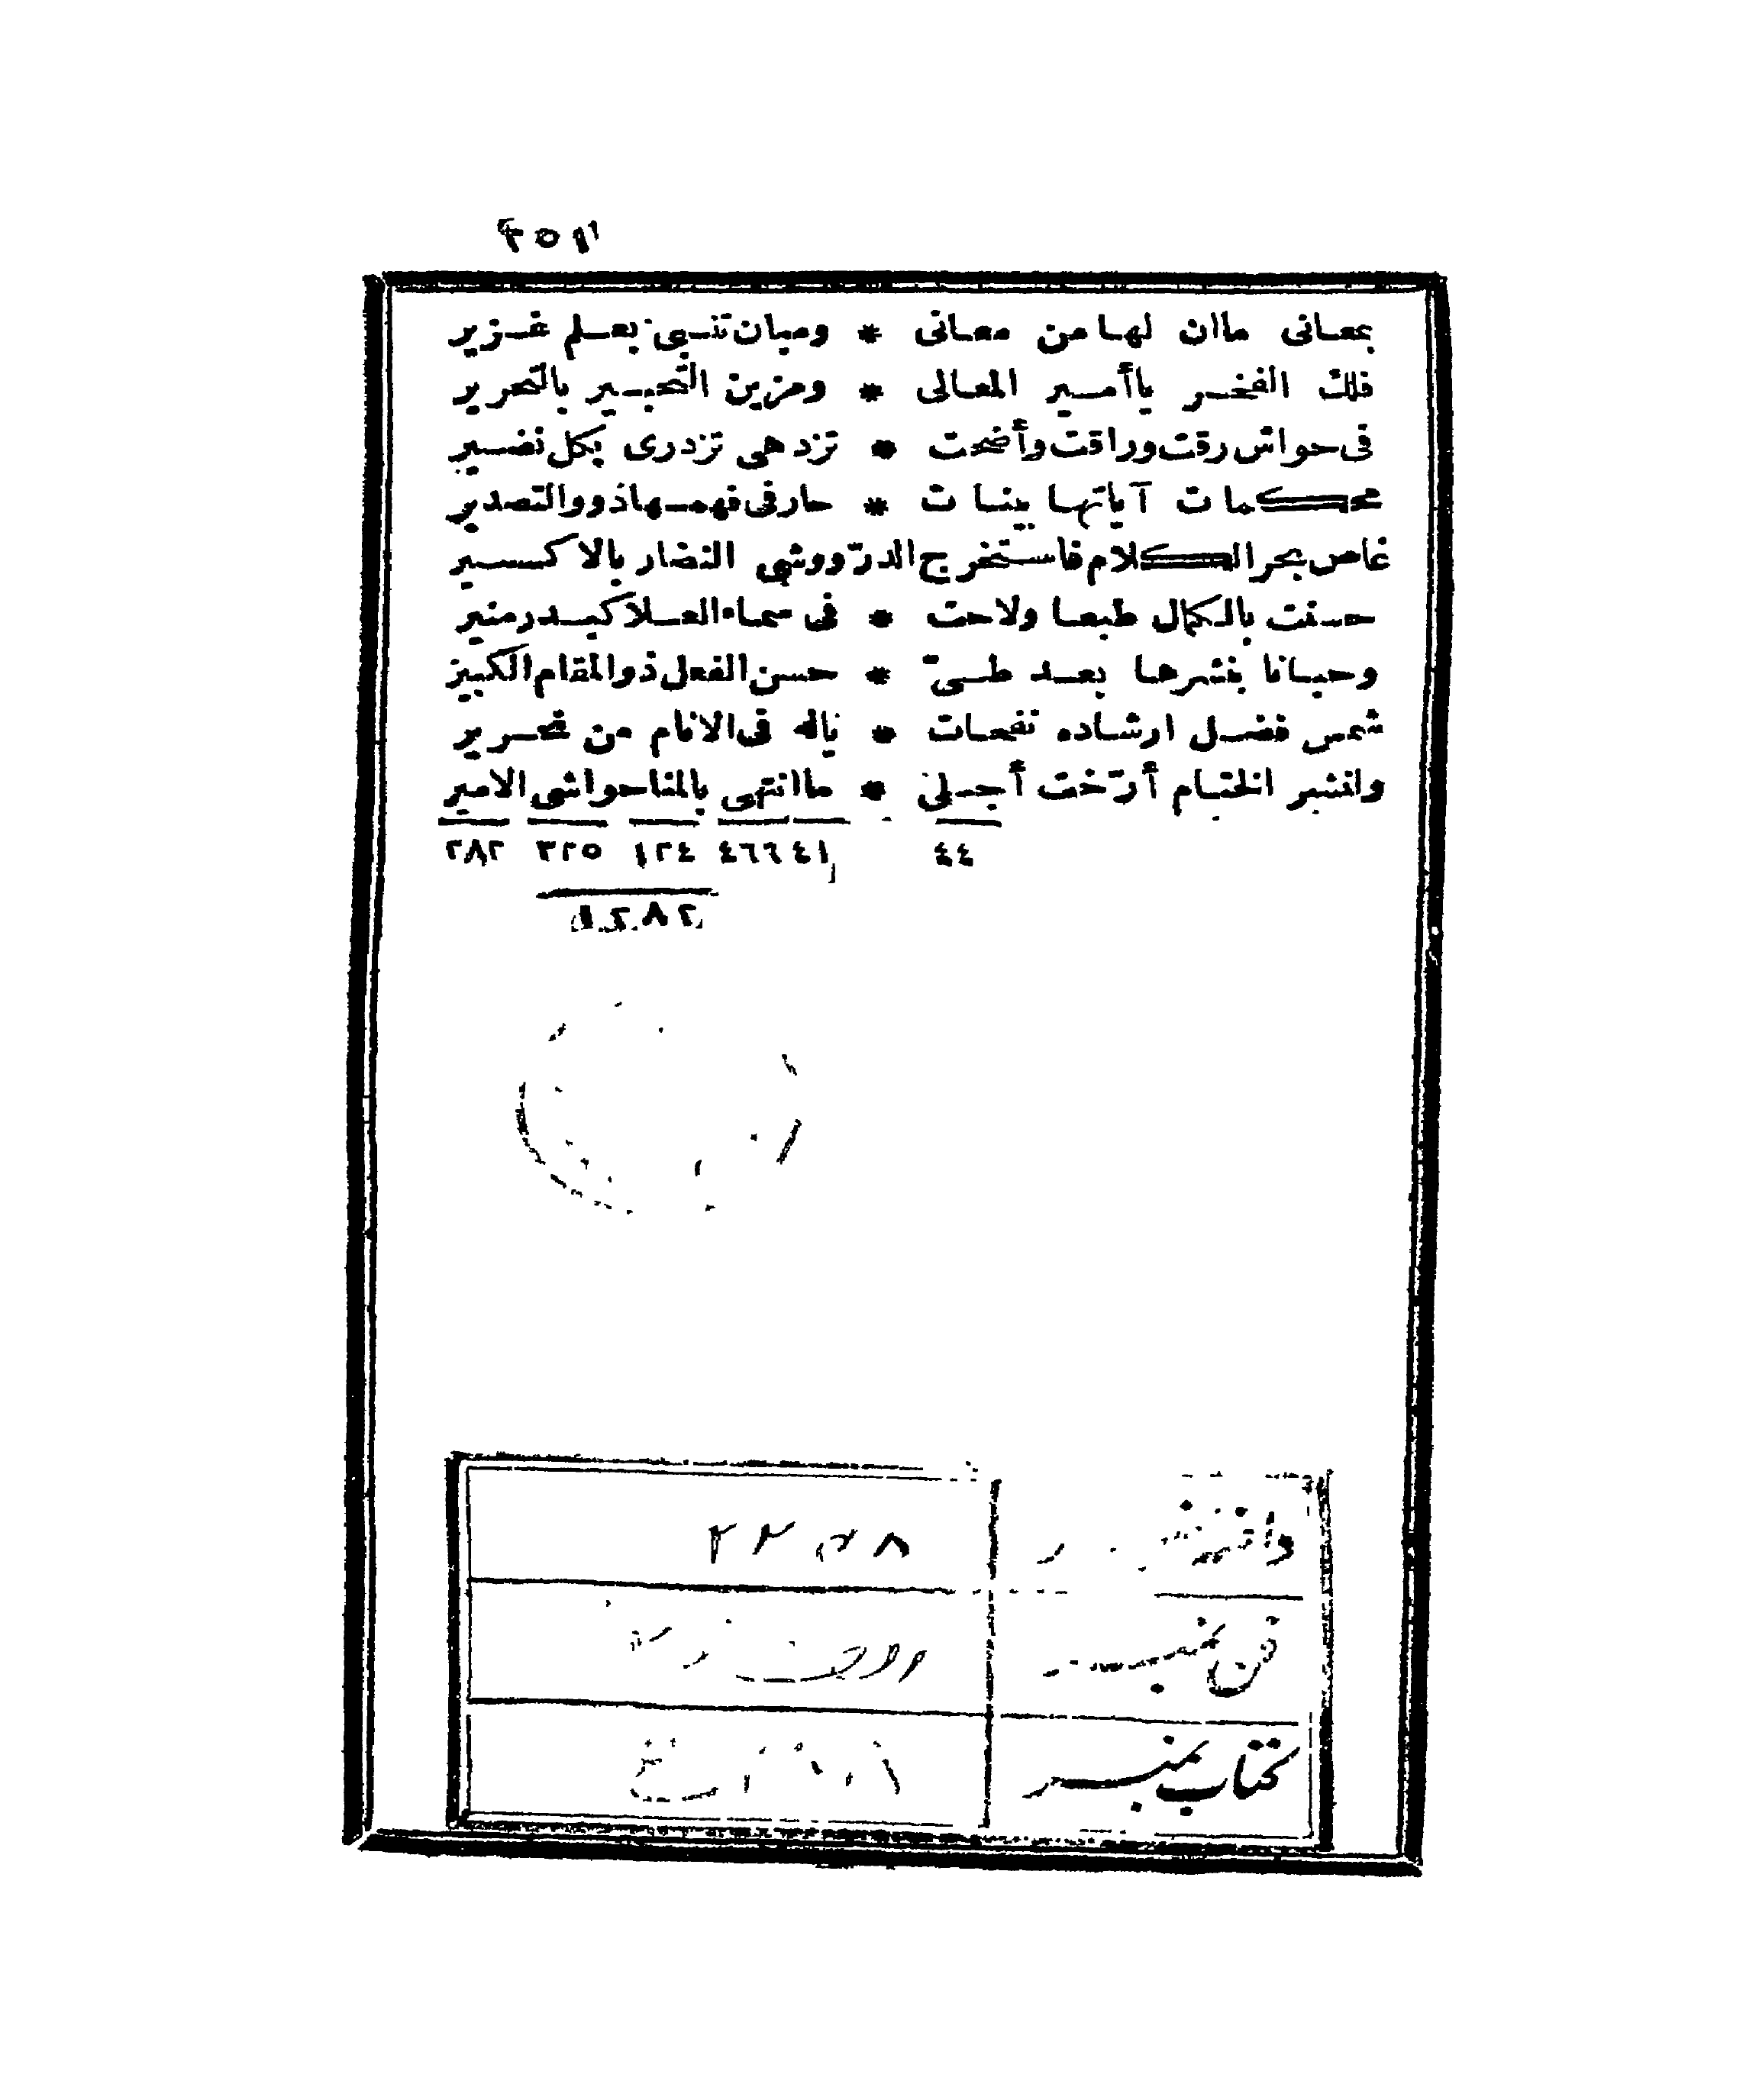 بمعانى ماان لها من معانى * ومبان تنبى بعلم غزير
فلك الفخر ياأمير المعالى * ومزين التحبير بالتحرير
فى حواش رقت وراقت وأضحت * تزدهى تزدرى بكل نضير
محكمات آياتها بينات * حار فى فهمها ذووالتصدير
غاص بحر الكلام فاستخرج الدرّ ووشى النضار بالاكسير
حسنت بالكمال طبعا ولاحت * فى سماء العلا كبدر منير
وحبانا بنشرها بعد طىّ * حسن الفعل ذو المقام الكبير
شمس فضل ارشاده نفحات * ياله فى الانام من نحرير
ولنشر الختام أرّخت أجلى * ماانتهى بالمنا حواشى الامير
٤٤ ٤١ ٤٦٦ ١٢٤ ٣٢٥ ٢٨٢
١٢٨٢
فن نمبر
كتاب نمبر